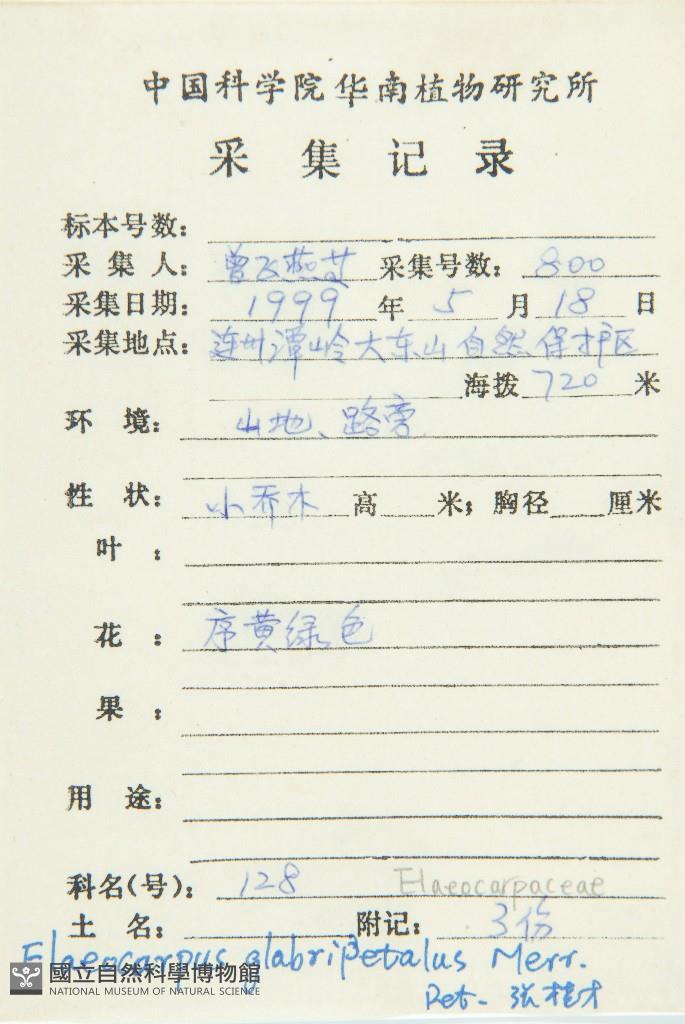 中国科学院华南植物研究所
采集记录
标本号数：
采集人：曾飞燕等 采集号数：800
采集日期：1999年5月18日
采集地点：连州潭岭大东山自然保护区
海拨720米
环境：山地、路旁
性状：小乔木 高 米；胸径 厘米
叶：
花：序黄绿色
果：
用途：
科名(号)：128 Elaeocarpaceae
土名： 附记：3份
Elaeocarpus glabripetalus Merr.
Det. 张桂才
國立自然科學博物館
NATIONAL MUSEUM OF NATURAL SCIENCE